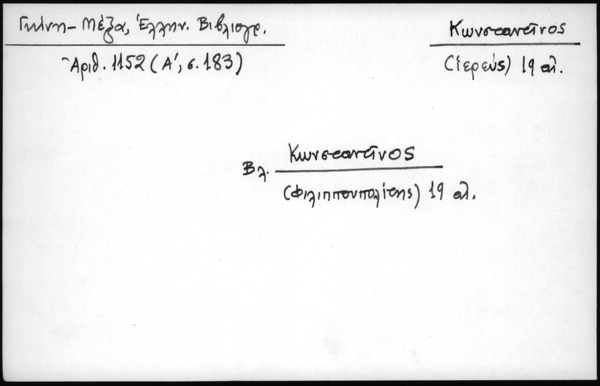 Γκίνη - Μέξα, Ἑλλην. Βιβλιογρ.
Ἀριθ. 1152 (Α', σ. 183)
Κωνσταντῖνος
(ἱερεύς) 19 αἰ.
Βλ. Κωνσταντῖνος
(Φιλιππουπολίτης) 19 αἰ.